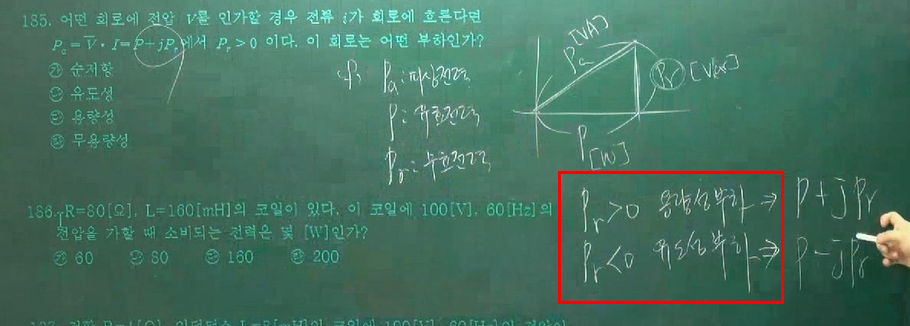 185. 어떤 회로에 전압 V를 인가할 경우 전류 i가 회로에 흐른다면
Pa=V̅·I=P+jPr에서 Pr>0 이다. 이 회로는 어떤 부하인가?
㉮ 순저항
㉯ 유도성
㉰ 용량성
㉱ 무용량성
Pa: 피상전력
P: 유효전력
Pr: 무효전력
Pa [VA]
Pr [Var]
P [W]
186. R=80[Ω], L=160[mH]의 코일이 있다. 이 코일에 100[V], 60[Hz]의
전압을 가할 때 소비되는 전력은 몇 [W]인가?
㉮ 60 ㉯ 80 ㉰ 160 ㉱ 200
Pr>0 용량성부하 ⇒ P+jPr
Pr<0 유도성부하 ⇒ P-jPr